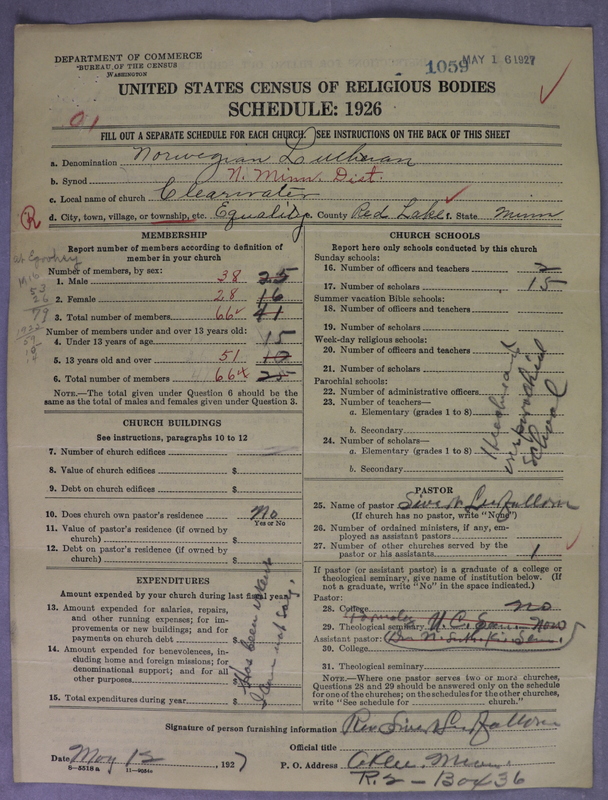 DEPARTMENT OF COMMERCE
BUREAU OF THE CENSUS
WASHINGTON
1059 MAY 16 1927
UNITED STATES CENSUS OF RELIGIOUS BODIES
SCHEDULE: 1926
01
FILL OUT A SEPARATE SCHEDULE FOR EACH CHURCH. SEE INSTRUCTIONS ON THE BACK OF THIS SHEET
a. Denomination Norwegian Lutheran
b. Synod N. Minn. Dist.
c. Local name of church Clearwater
R
d. City, town, village, or township, etc. Equality County Red Lake State Minn
MEMBERSHIP
Report number of members according to definition of
member in your church
Number of members, by sex:
1. Male 38 25
2. Female 28 16
3. Total number of members 66 41
Number of members under and over 13 years old:
4. Under 13 years of age 15
5. 13 years old and over 51 10
6. Total number of members 66 25
NOTE.—The total given under Question 6 should be the
same as the total of males and females given under Question 3.
CHURCH BUILDINGS
See instructions, paragraphs 10 to 12
7. Number of church edifices
8. Value of church edifices $
9. Debt on church edifices $
10. Does church own pastor's residence? No
Yes or No
11. Value of pastor's residence (if owned by
church) $
12. Debt on pastor's residence (if owned by
church) $
EXPENDITURES
Amount expended by your church during last fiscal year
13. Amount expended for salaries, repairs,
and other running expenses; for im-
provements or new buildings; and for
payments on church debt $
14. Amount expended for benevolences, in-
cluding home and foreign missions; for
denominational support; and for all
other purposes $
15. Total expenditures during year $
Has been vacant
I can not say.
CHURCH SCHOOLS
Report here only schools conducted by this church
Sunday schools:
16. Number of officers and teachers 2
17. Number of scholars 15
Summer vacation Bible schools:
18. Number of officers and teachers
19. Number of scholars
Week-day religious schools:
20. Number of officers and teachers
21. Number of scholars
Parochial schools:
22. Number of administrative officers
23. Number of teachers—
a. Elementary (grades 1 to 8)
b. Secondary
24. Number of scholars—
a. Elementary (grades 1 to 8)
b. Secondary
parochial
school
PASTOR
25. Name of pastor
(If church has no pastor, write "None")
26. Number of ordained ministers, if any, em-
ployed as assistant pastors
27. Number of other churches served by the
pastor or his assistants 1
If pastor (or assistant pastor) is a graduate of a college or
theological seminary, give name of institution below. (If
not a graduate, write "No" in the space indicated.)
Pastor:
28. College no
29. Theological seminary U. C. Sem. Now
Assistant pastor:
30. College
31. Theological seminary
NOTE.—Where one pastor serves two or more churches,
Questions 28 and 29 should be answered only on the schedule
for one of the churches; on the schedules for the other churches,
write "See schedule for church."
Signature of person furnishing information Rev.
Official title
Date May 12, 1927 P. O. Address Oklee Minn.
8—5518a 11—9054 R. 2 — Box 36